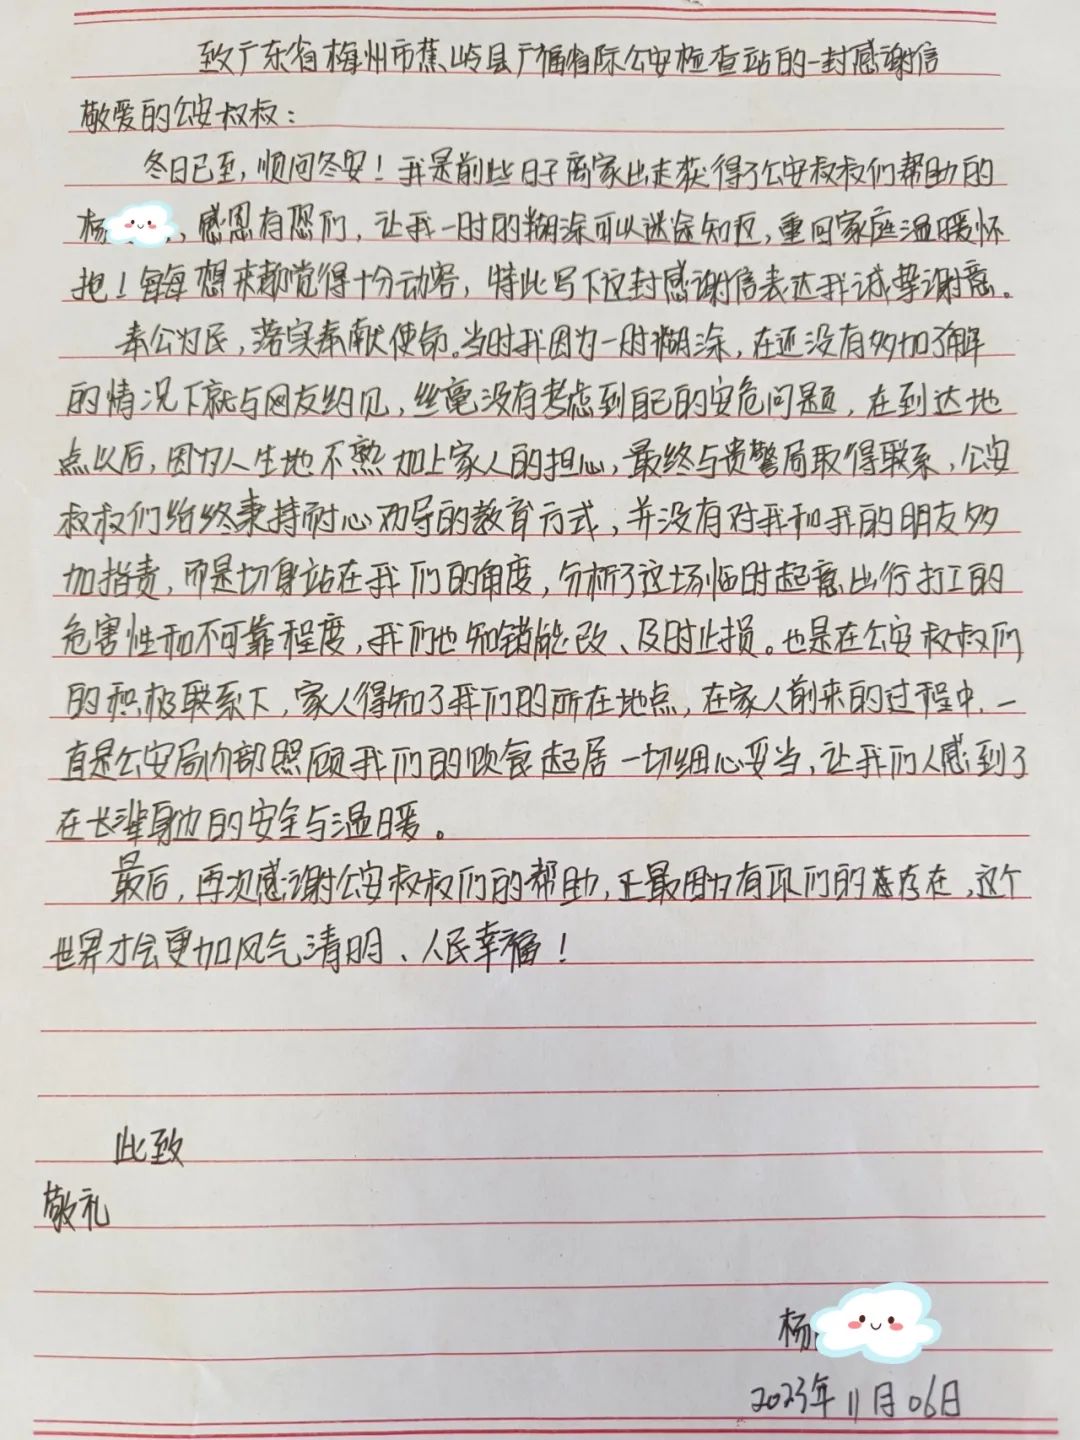 致广东省梅州市蕉岭县广福省际公安检查站的一封感谢信
敬爱的公安叔叔：
冬日已至，顺问冬安！我是前些日子离家出走获得了公安叔叔们帮助的
杨，感恩有您们，让我一时的糊涂可以迷途知返，重回家庭温暖怀
抱！每每想来都觉得十分动容，特此写下这封感谢信表达我诚挚谢意。
奉公为民，落实奉献使命。当时我因为一时糊涂，在还没有多加了解
的情况下就与网友约见，丝毫没有考虑到自己的安危问题，在到达地
点以后，因为人生地不熟加上家人的担心，最终与贵警局取得联系，公安
叔叔们始终秉持耐心劝导的教育方式，并没有对我和我的朋友多
加指责，而是切身站在我们的角度，分析了这场临时起意出行打工的
危害性和不可靠程度，我们也知错能改、及时止损。也是在公安叔叔们
的积极联系下，家人得知了我们的所在地点，在家人前来的过程中，一
直是公安局内部照顾我们的饮食起居一切细心妥当，让我们人感到了
在长辈身边的安全与温暖。
最后，再次感谢公安叔叔们的帮助，正最因为有你们的存在，这个
世界才会更加风气清明、人民幸福！
此致
敬礼
杨
2023年11月06日